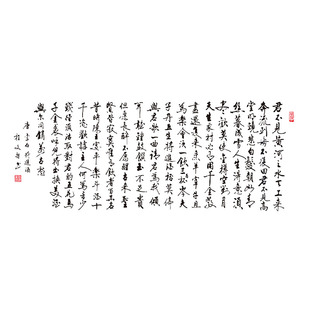 君不見黃河之水天上來
奔流到海不復回君不見高
堂明鏡悲白髮朝如青
絲暮成雪人生得意須
盡歡莫使金樽空對月
天生我材必有用千金散
盡還復來烹羊宰牛且
為樂會須一飲三百杯岑夫
子丹丘生將進酒杯莫停
與君歌一曲請君為我傾
耳聽鐘鼓饌玉不足貴
但願長醉不願醒古來聖
賢皆寂寞惟有飲者留其名
昔時陳王宴平樂斗酒十
千恣歡謔主人何為言少
錢徑須沽取對君酌五花馬
千金裘呼兒將出換美酒
與爾同銷萬古愁
唐李白將進酒